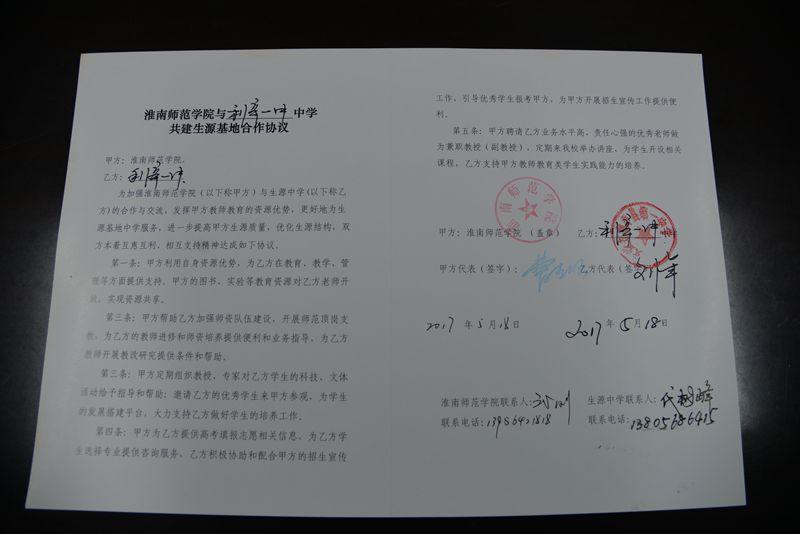 淮南师范学院与利辛一中中学
共建生源基地合作协议
甲方：淮南师范学院
乙方：利辛一中
为加强淮南师范学院（以下称甲方）与生源中学(以下称乙
方)的合作与交流，发挥甲方教师教育的资源优势，更好地为生
源基地中学服务，进一步提高甲方生源质量、优化生源结构，双
方本着互惠互利、相互支持精神达成如下协议。
第一条：甲方利用自身资源优势，为乙方在教育、教学、管
理等方面提供支持。甲方的图书、实验等教育资源对乙方老师开
放，实现资源共享。
第三条：甲方帮助乙方加强师资队伍建设，开展师范顶岗支
教，为乙方的教师进修和师资培养提供便利和业务指导，为乙方
教师开展教改研究提供条件和帮助。
第三条：甲方定期组织教授、专家对乙方学生的科技、文体
活动给予指导和帮助；邀请乙方的优秀学生来甲方参观，为学生
的发展搭建平台，大力支持乙方做好学生的培养工作。
第四条：甲方为乙方提供高考填报志愿相关信息，为乙方学
生选择专业提供咨询服务，乙方积极协助和配合甲方的招生宣传
工作、引导优秀学生报考甲方，为甲方开展招生宣传工作提供便
利。
第五条：甲方聘请乙方业务水平高、责任心强的优秀老师做
为兼职教授（副教授），定期来我校举办讲座，为学生开设相关
课程，乙方支持甲方教师教育类学生实践能力的培养。
淮南师范学院
甲方：淮南师范学院 （盖章） 乙方：利辛一中
甲方代表（签字）： 乙方代表（签字）
2017 年 5 月 18 日 2017 年 5 月 18 日
淮南师范学院联系人： 生源中学联系人：
联系电话：13956421818 联系电话：13805686415